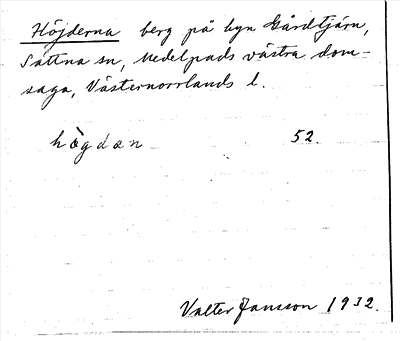 Höjderna berg på byn Gårdtjärn,
Sättna sn, Medelpads västra dom-
saga, Västernorrlands l.
hògdæn 52.
Valter Jansson 1932.